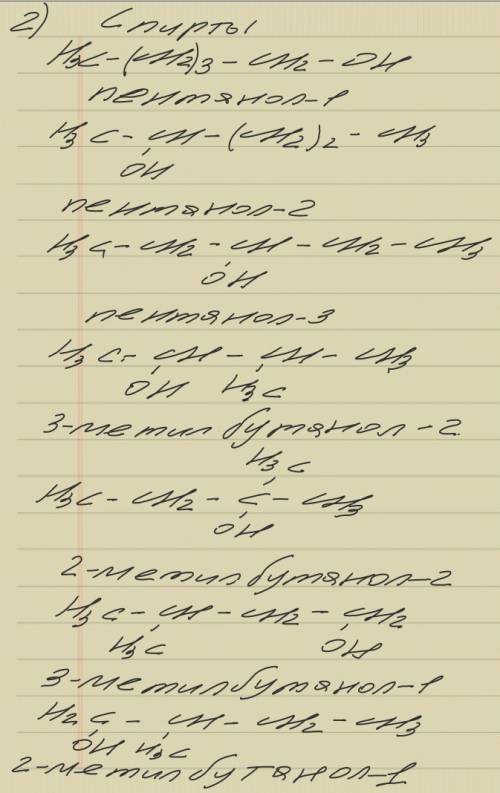 2) Спирты
H3C-(CH2)3-CH2-OH
пентанол-1
H3C-CH-(CH2)2-CH3
OH
пентанол-2
H3C-CH2-CH-CH2-CH3
OH
пентанол-3
H3C-CH-CH-CH3
OH H3C
3-метилбутанол-2
H3C
H3C-CH2-C-CH3
OH
2-метилбутанол-2
H3C-CH-CH2-CH2
H3C OH
3-метилбутанол-1
H2C-CH-CH2-CH3
OH H3C
2-метилбутанол-1